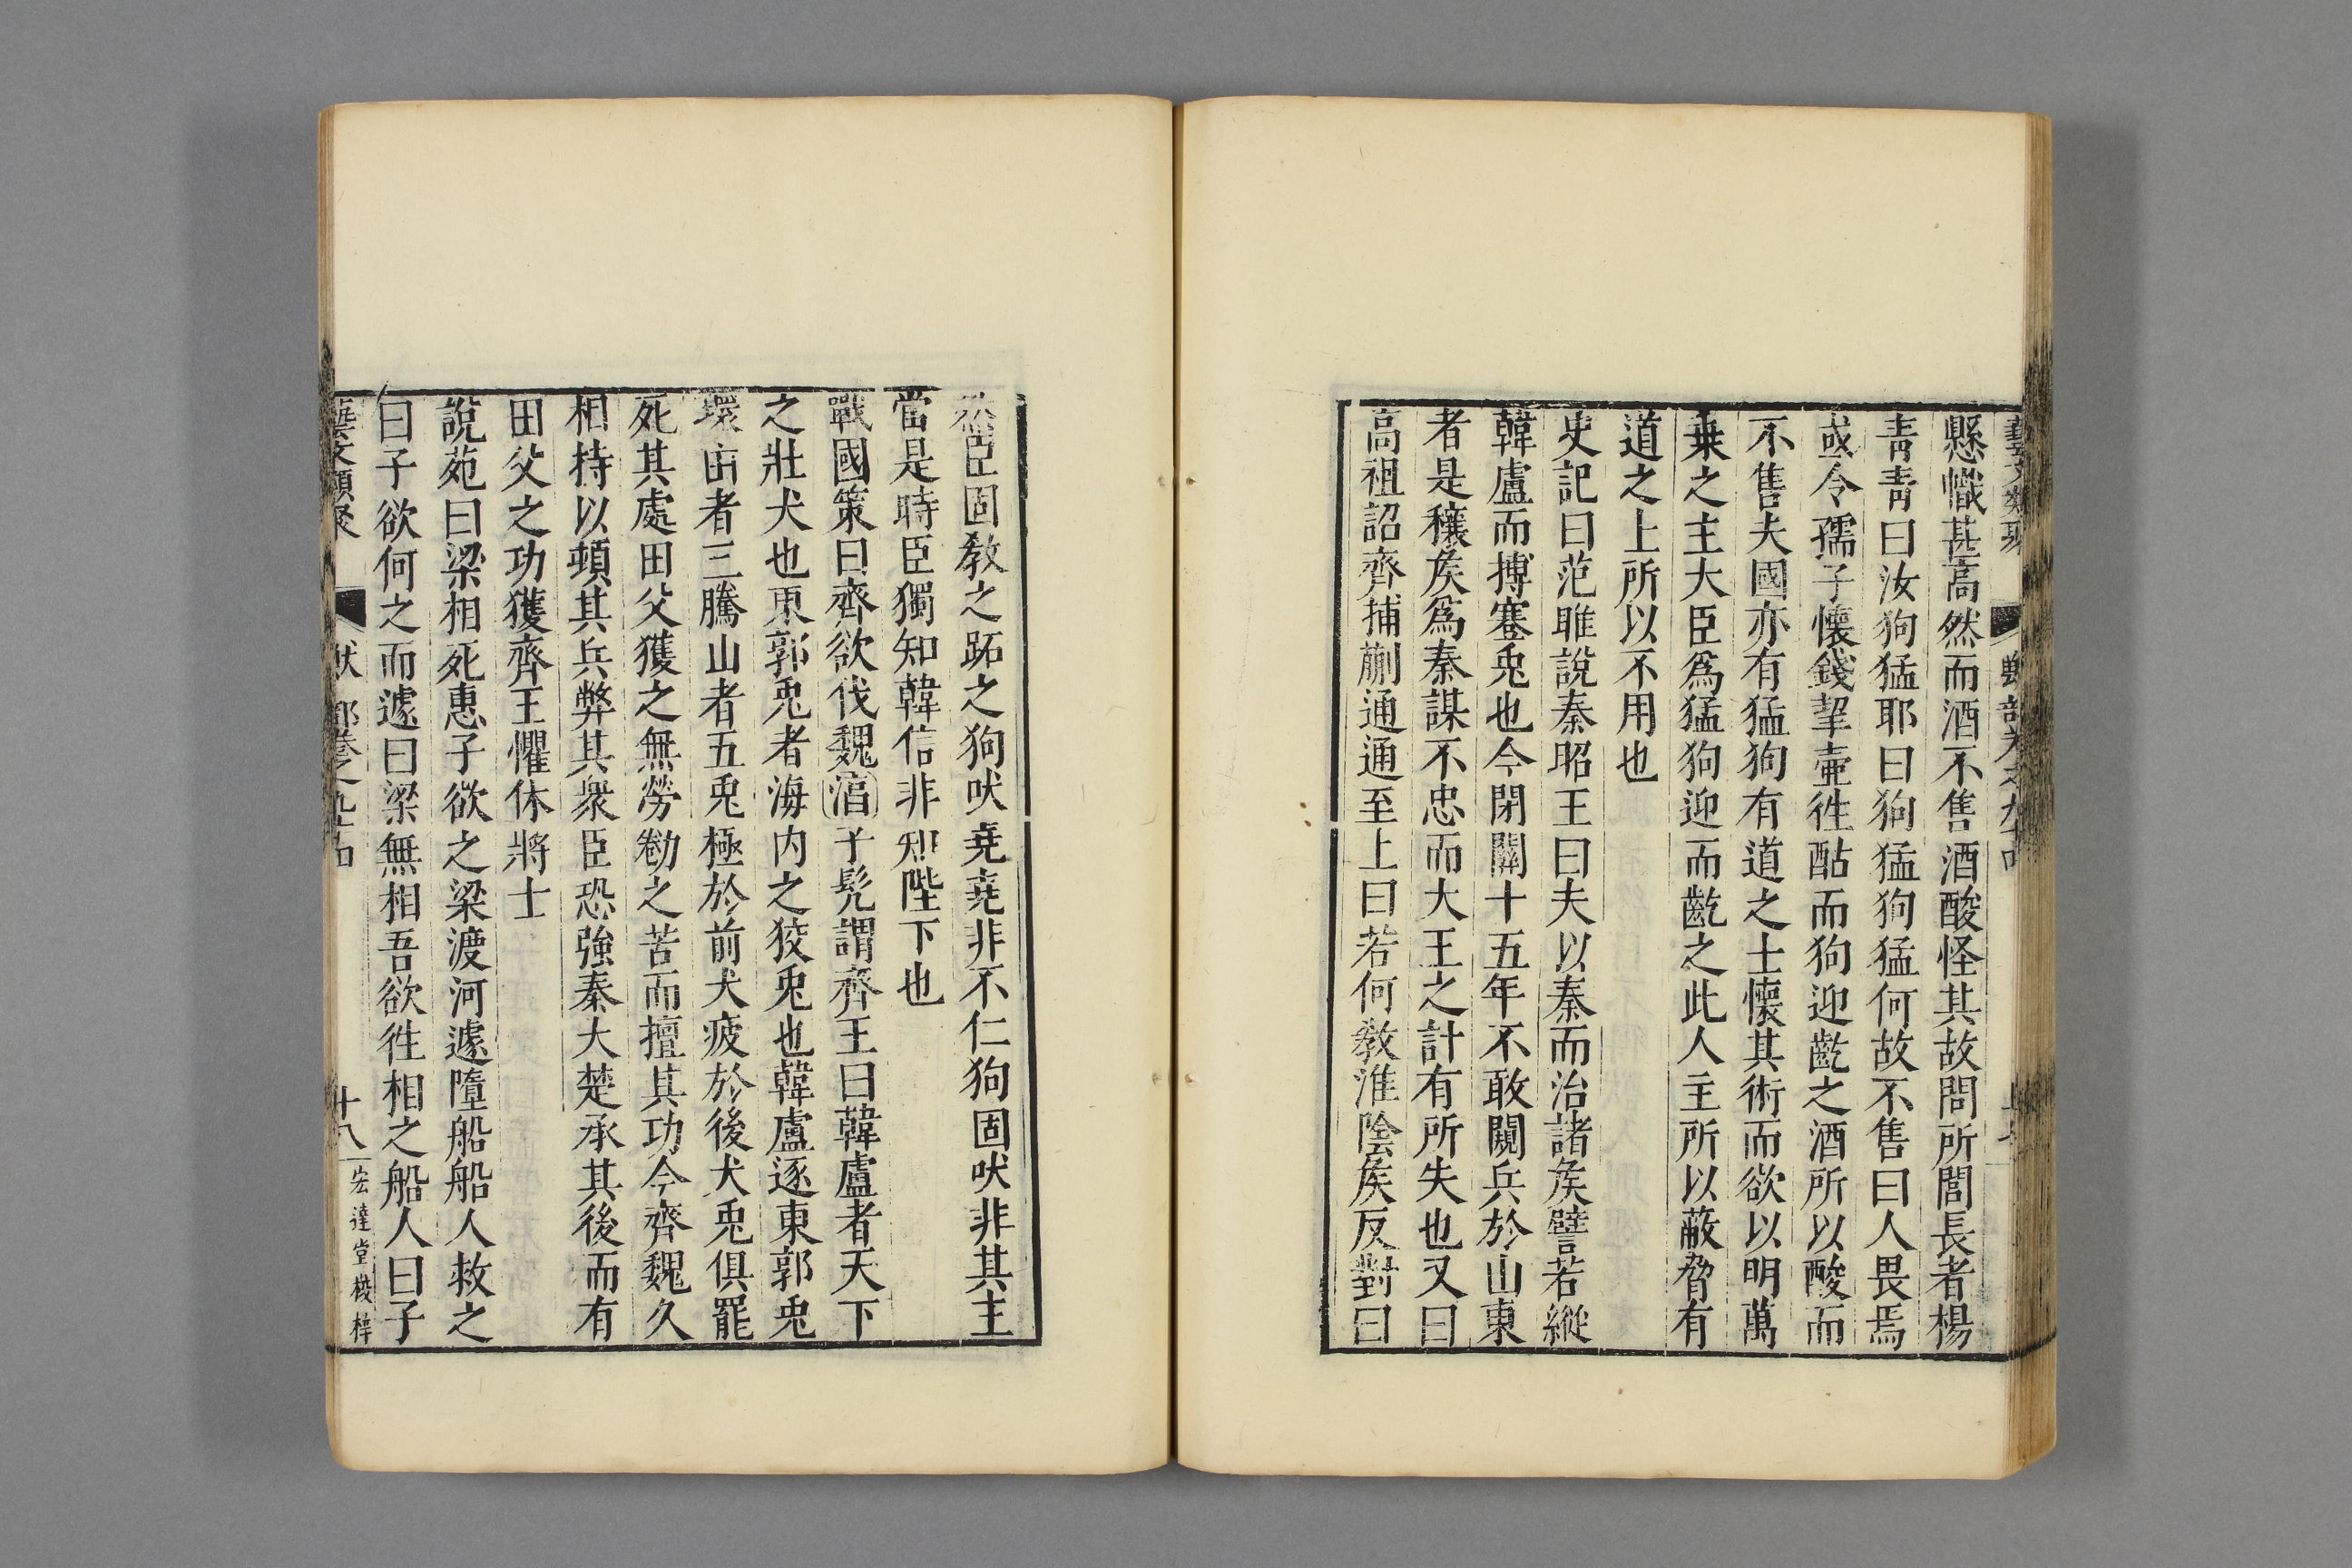 懸幟甚高然而酒不售酒酸怪其故問所閭長者楊
青青曰汝狗猛耶曰狗猛狗猛何故不售曰人畏焉
或令孺子懷錢挈壷徃酤而狗迎齕之酒所以酸而
不售夫國亦有猛狗有道之士懷其術而欲以明萬
乗之主大臣爲猛狗迎而齕之此人主所以蔽脅有
道之上所以不用也
史記曰范雎說秦昭王曰夫以秦而治諸矦譬若縱
韓盧而搏蹇兎也今閉關十五年不敢闚兵於山東
者是穰矦爲秦謀不忠而大王之計有所失也又曰
高祖詔齊捕蒯通通至上曰若何敎淮陰矦反對曰
然臣固敎之跖之狗吠堯堯非不仁狗固吠非其主
當是時臣獨知韓信非知陛下也
戰國策曰齊欲伐魏淳于髠謂齊王曰韓盧者天下
之壯犬也東郭兎者海内之狡兎也韓盧逐東郭兎
環田者三騰山者五兎極於前犬疲於後犬兎俱罷
死其處田父獲之無勞勌之苦而擅其功今齊魏久
相持以頓其兵弊其衆臣恐強秦大楚承其後而有
田父之功獲齊王懼休將士
說苑曰梁相死惠子欲之梁渡河遽墮船船人救之
曰子欲何之而遽曰梁無相吾欲徃相之船人曰子
藝文類聚 獣部卷之九十四 十八 宏達堂校梓